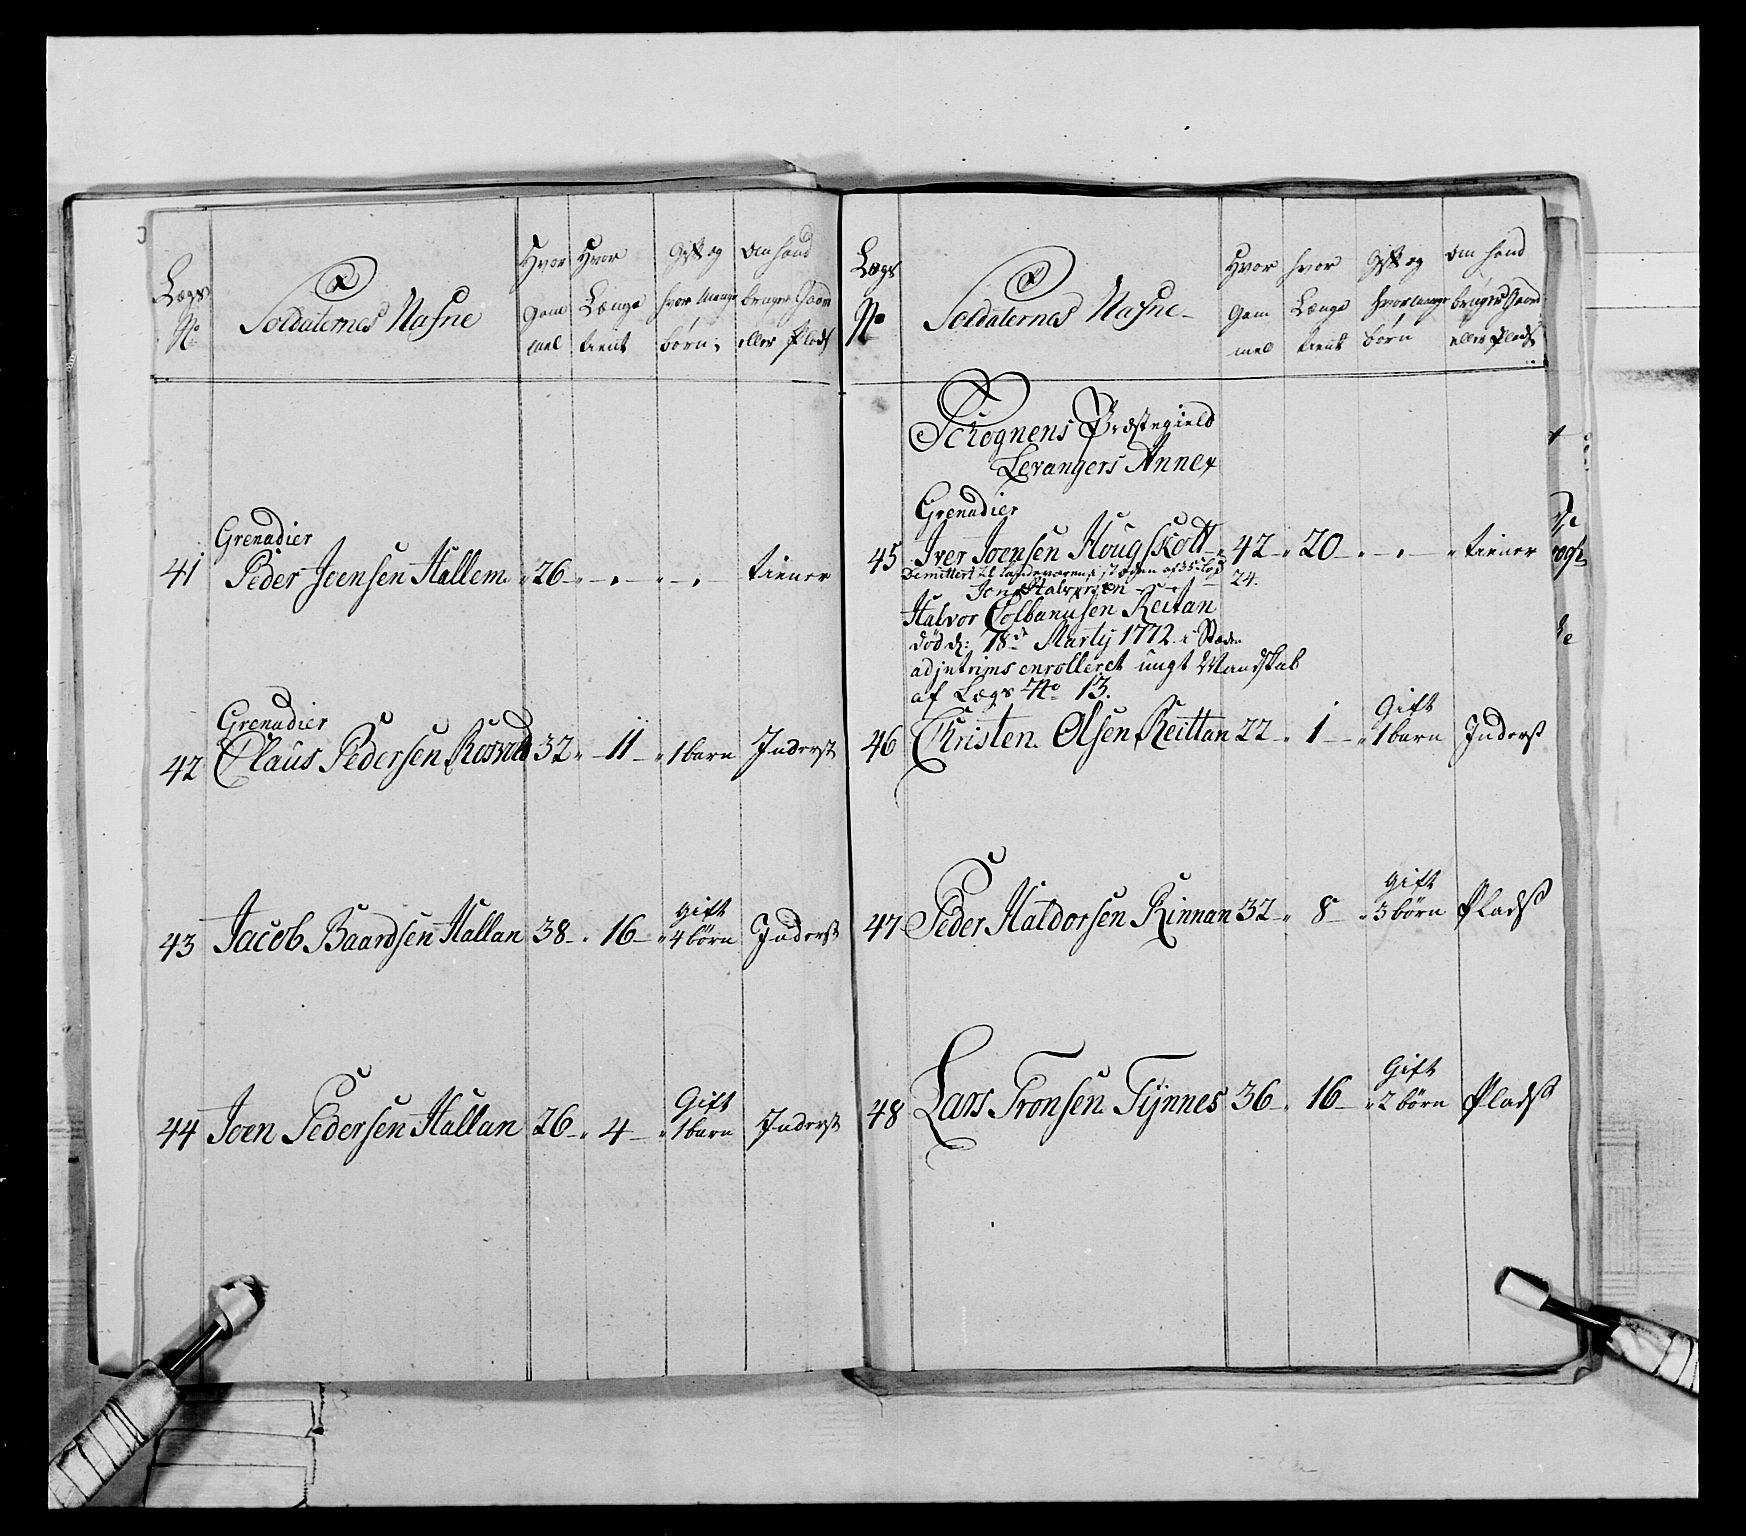 Lægs No
Soldaternes Nafne
Hvor gam mel
Hvor Længe tient
Gift og hvor Mange børn,
Om hand bruger Gaard eller Plads
Grenadier
41 Peder Joensen Hallem „ 26 – „ – . „ – . tiener
Grenadier
42 Claus Pedersen Rosvold 32 „ – 11 – „ 1 barn Inderst
Gift
43 Jacob Baardsen Hallan 38 – „ 16 – „ 4 børn Inderst
Gift
44 Joen Pedersen Hallan 26 – „ 4 – „ 1 barn Inderst
Lægs No
Soldaternes Nafne
Hvor gam mel
hvor Længe tient
Gift og hvor mange børn
Om hand bruger Gaard eller Plads
Schognens Præstegield
Levangers Annex
Grenadier
45 Iver Joensen Hougskott „ 42 „ 20 – . – . – „ tiener
Dimitteret til Landeværens
Jon Halvorsen 24.
Halvor Colbanusen Reitan
død d: 18de Martij 1772. i Stæden
adjetrims enrolleret ungt Mandskab
af Lægs No 13.
Gift
46 Christen Olsen Reittan 22 „ 1 – „ 1 barn Inderst
Gift
47 Peder Haldorsen Rinnan 32 – „ 8 – „ 3 børn Plads
Gift
48 Lars Tronsen Tÿnnes 36 – „ 16 – „ 2 børn Plads